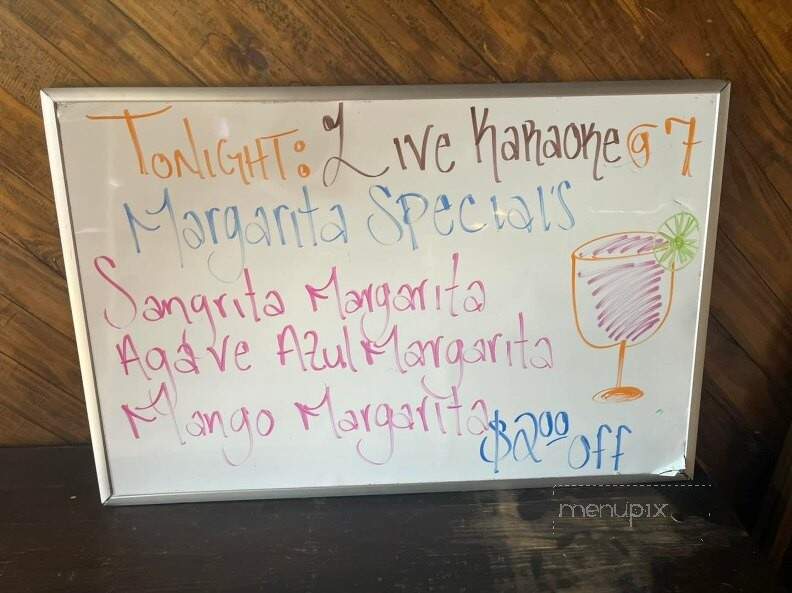 TONIGHT: Live Karaoke @ 7
Margarita Special's
Sangrita Margarita
Agave Azul Margarita
Mango Margarita
$2.00 off
menupix